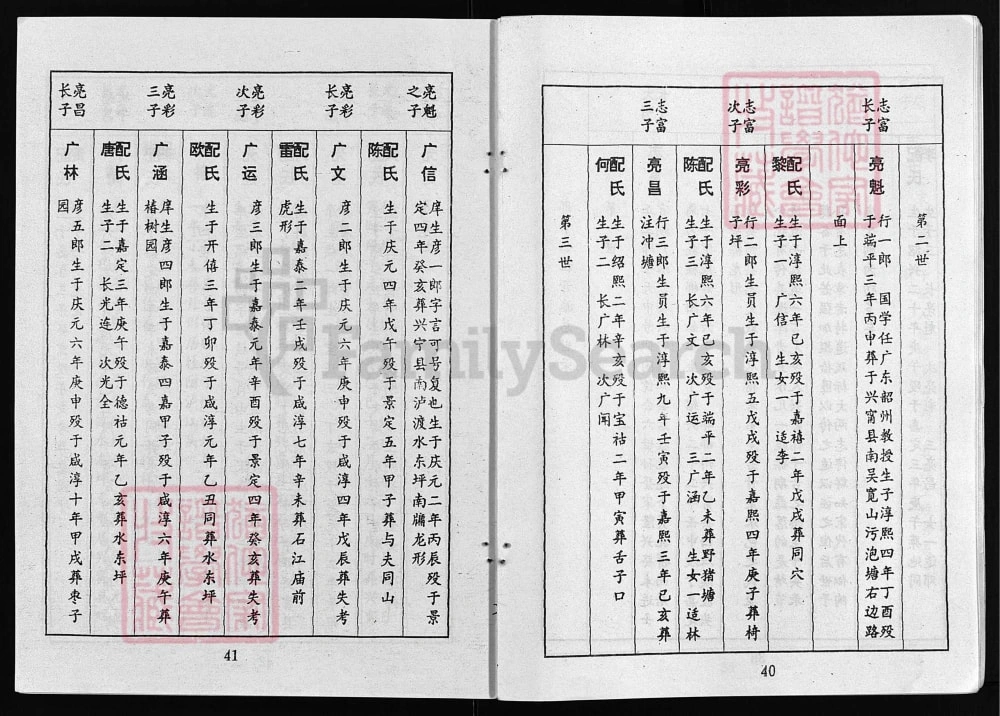 第二世
志富
长子
亮魁
行一郎 国学任广东韶州教授生子淳熙四年丁酉殁
于端平三年丙申葬于兴甯县南吴宽山污泡塘右边路
面上
配
黎氏
生于淳熙六年己亥殁于嘉禧二年戊戌葬同穴
生子一 广信 生女一 适李
志富
次子
亮彩
行二郎生员生于淳熙五戊戌殁于嘉熙四年庚子葬椅
子坪
配
陈氏
生于淳熙六年己亥殁于端平二年乙未葬野猪塘
生子三 长广文 次广运 三广涵 生女一适林
志富
三子
亮昌
行三郎生员生于淳熙九年壬寅殁于嘉熙三年己亥葬
注冲塘
配
何氏
生于绍熙二年辛亥殁于宝祜二年甲寅葬舌子口
生子二 长广林 次广闻
第三世
40
亮魁
之子
广信
庠生彦一郎字言可号复也生于庆元二年丙辰殁于景
定四年癸亥葬兴宁县南泸渡水东坪南牖龙形
配
陈氏
生于庆元四年戊午殁于景定五年甲子葬与夫同山
亮彩
长子
广文
彦二郎生于庆元六年庚申殁于咸淳四年戊辰葬失考
配
雷氏
生于嘉泰二年壬戌殁于咸淳七年辛未葬石江庙前
虎形
亮彩
次子
广运
彦三郎生于嘉泰元年辛酉殁于景定四年癸亥葬失考
配
欧氏
生于开禧三年丁卯殁于咸淳元年乙丑同葬水东坪
亮彩
三子
广涵
庠生彦四郎生于嘉泰四嘉甲子殁于咸淳六年庚午葬
椿树园
配
唐氏
生于嘉定三年庚午殁于德祜元年乙亥葬水东坪
生子二 长光连 次光全
亮昌
长子
广林
彦五郎生于庆元六年庚申殁于咸淳十年甲戌葬枣子
园
41
FamilySearch